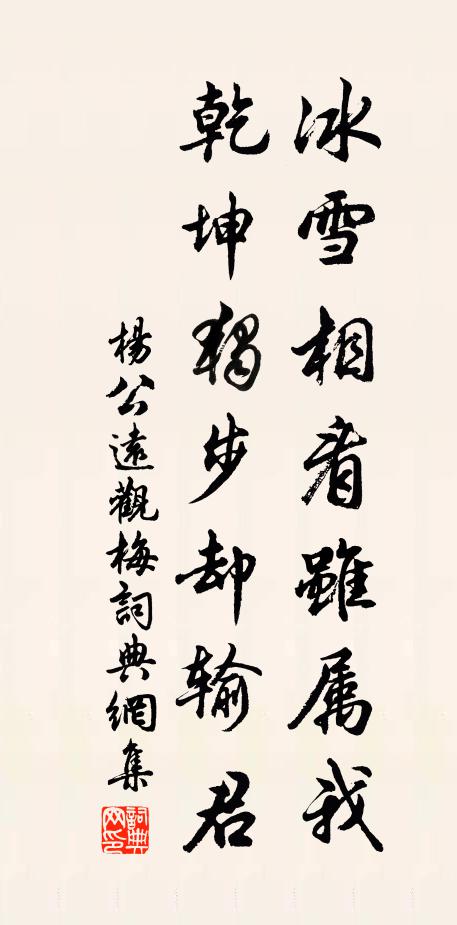 冰雪相看雖属我
乾坤獨步却输君
楊公遠觀梅詞典網集
詞典网印